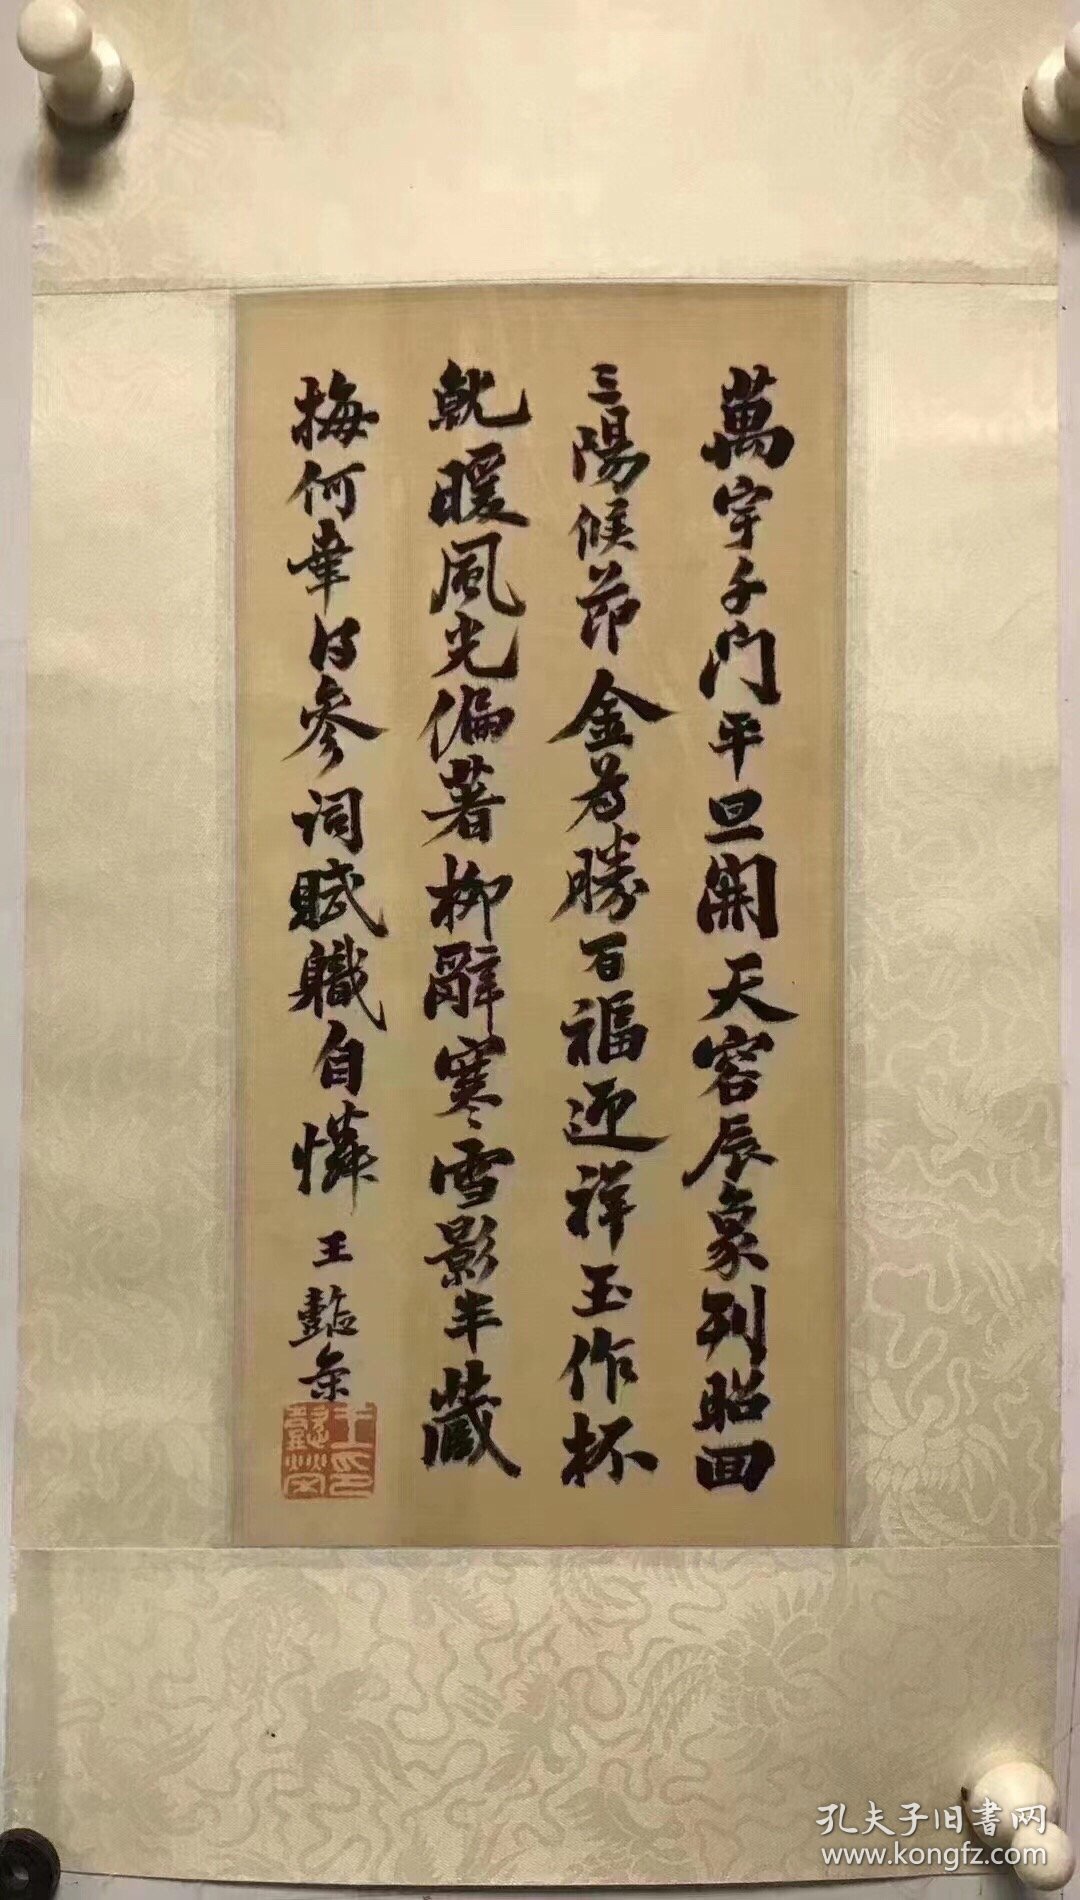 萬宇千門平旦開天容辰象列昭回
三陽候節金爲勝百福迎祥玉作杯
就暖風光偏著柳辭寒雪影半藏
梅何幸得參詞賦職自憐王懿榮
王印懿榮
孔夫子旧书网
www.kongfz.com